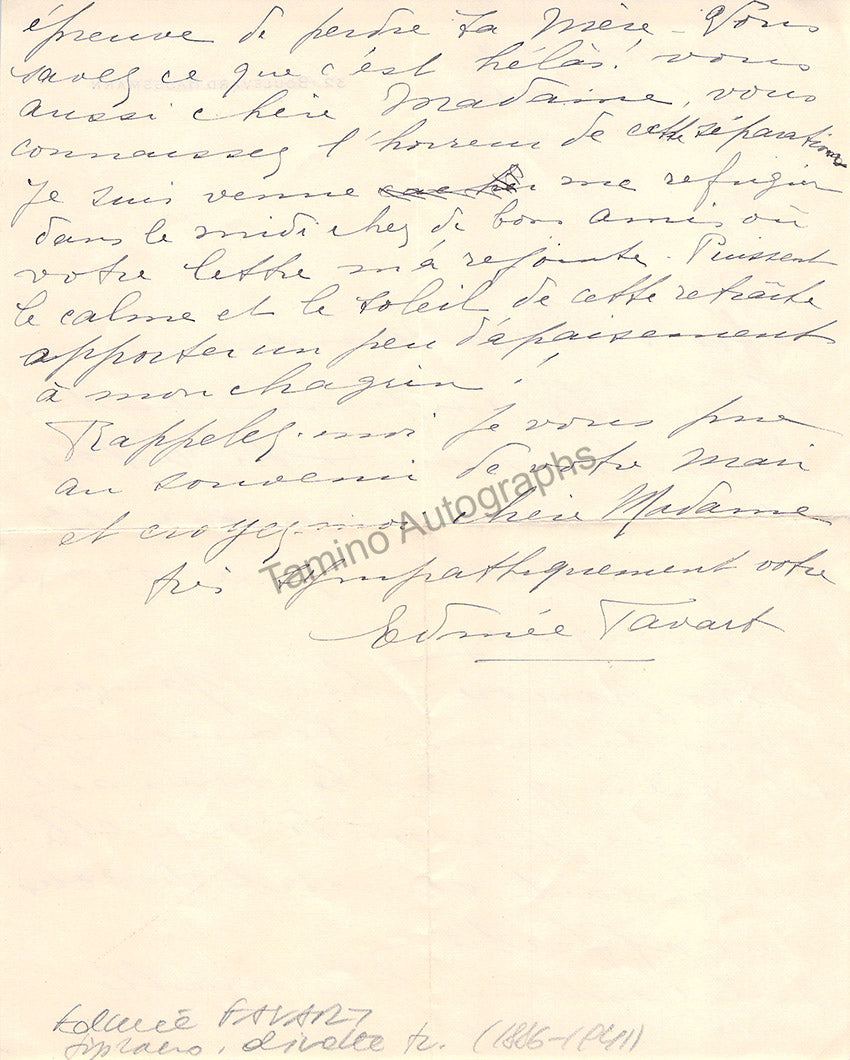 épreuve de perdre sa mère - Vous
savez ce que c'est hélas! vous
aussi chère Madame, vous
connaissez l'horreur de cette séparation
Je suis venue me refugier
dans le midi chez de bons amis où
votre lettre m'a rejointe. Puissent
le calme et le soleil de cette retraite
apporter un peu d'apaisement
à mon chagrin!
Rappelez-moi je vous prie
au souvenir de votre mari
et croyez-moi chère Madame
très sympathiquement votre
Edmée Favart
Tamino Autographs
Edmée FAVART
soprano, divette fr.